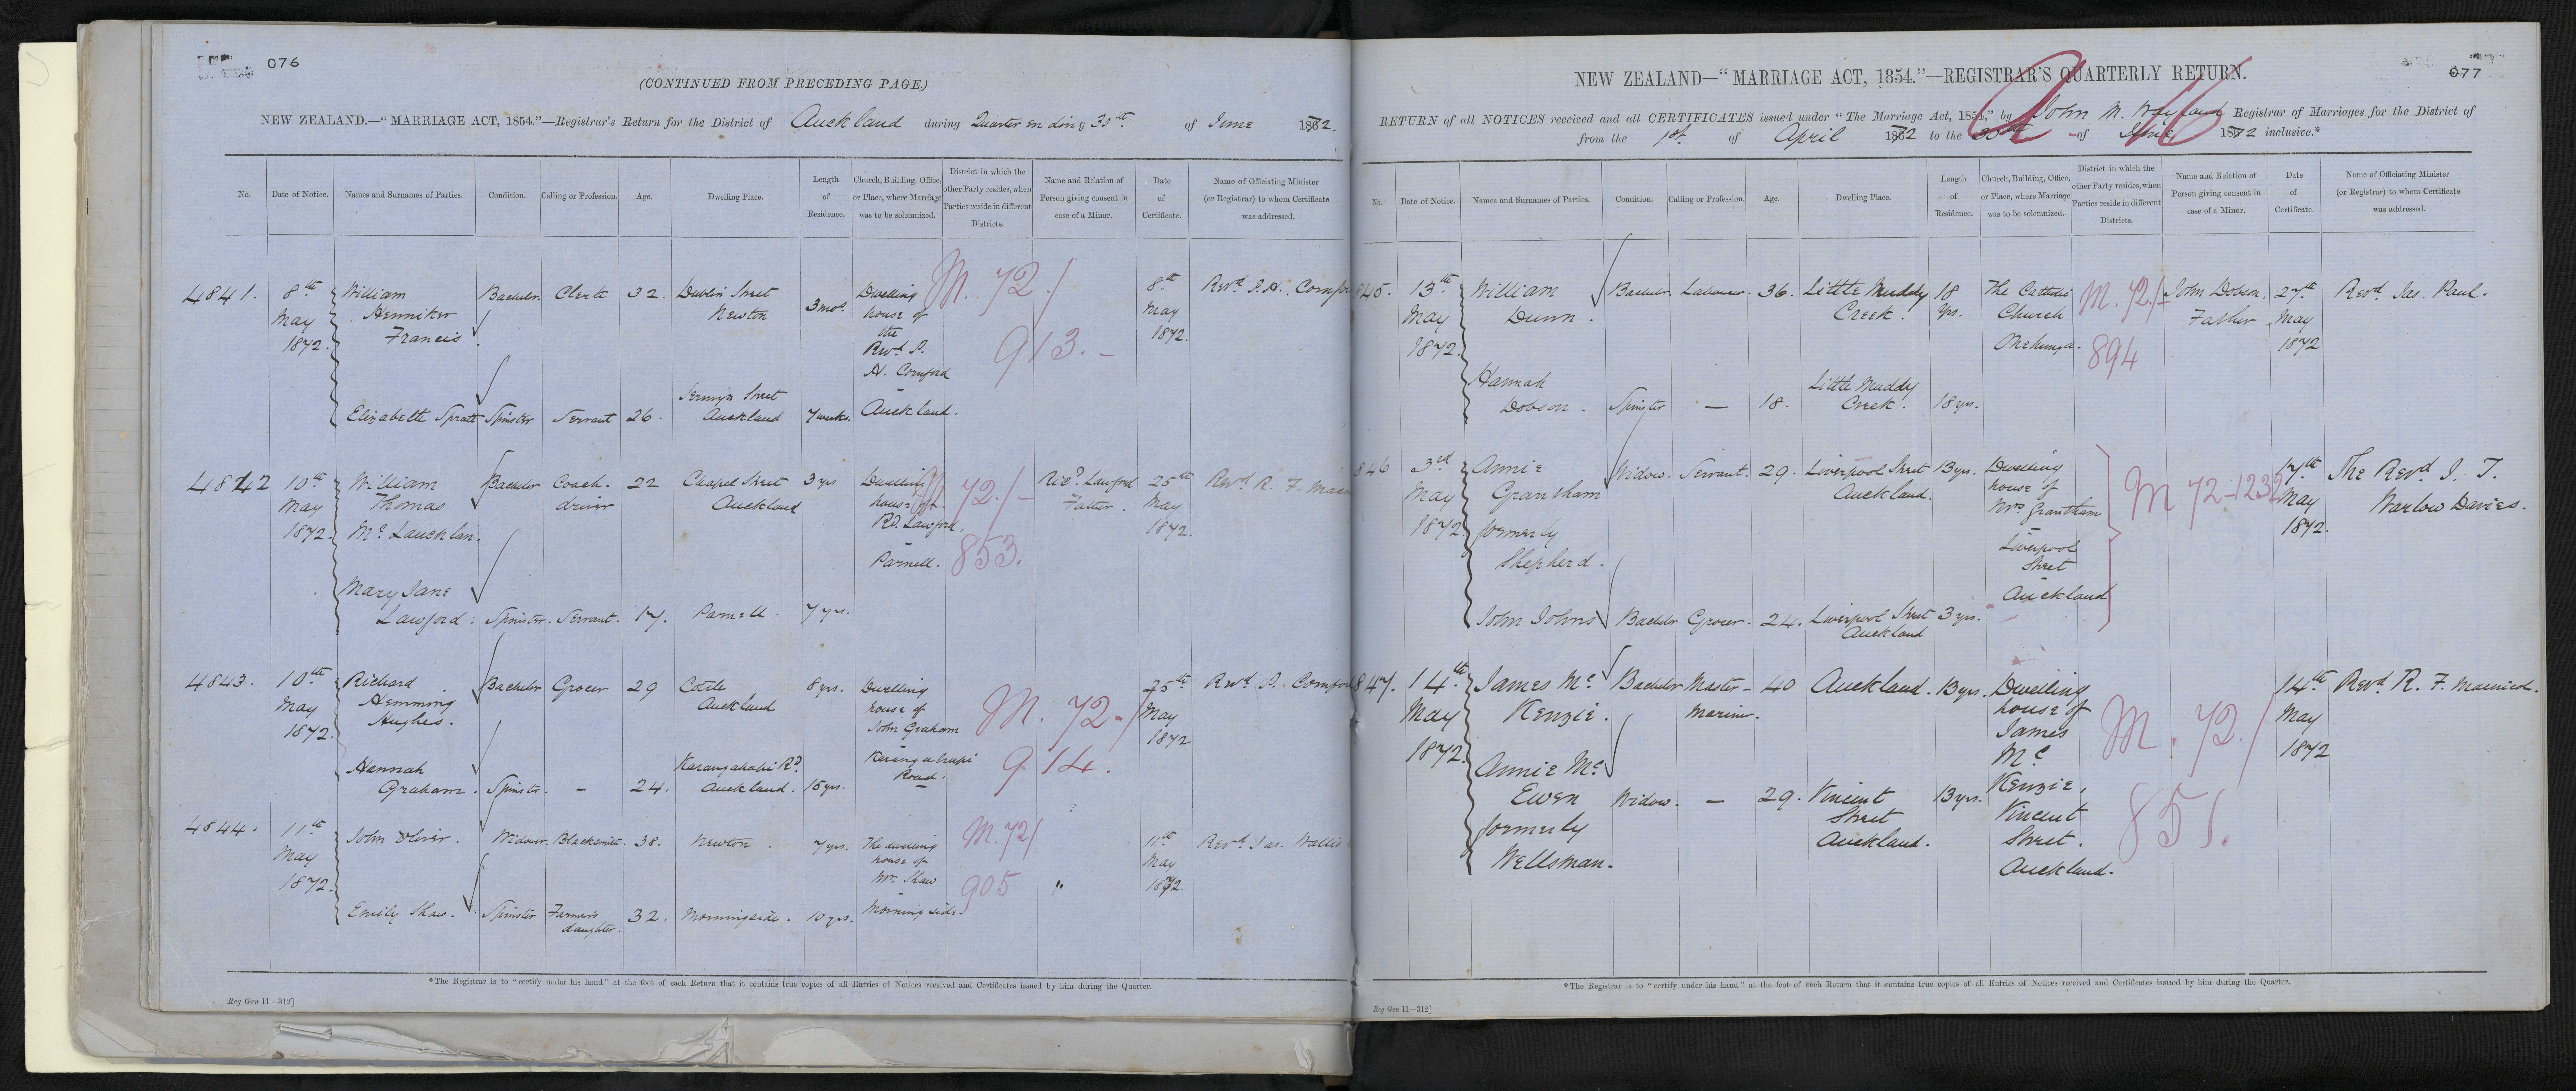 076
(CONTINUED FROM PRECEDING PAGE.)
NEW ZEALAND.—"MARRIAGE ACT, 1854."—Registrar's Return for the District of Auckland during Quarter ending 30th of June 1872.
No.
Date of Notice.
Names and Surnames of Parties.
Condition.
Calling or Profession.
Age.
Dwelling Place.
Length
of
Residence.
Church, Building, Office,
or Place, where Marriage
was to be solemnized.
District in which the
other Party resides, when
Parties reside in different
Districts.
Name and Relation of
Person giving consent in
case of a Minor.
Date
of
Certificate.
Name of Officiating Minister
(or Registrar) to whom Certificate
was addressed.
4841.
8th
May
1872.
William
Henniker
Francis
Bachelor
Clerk
32.
Dublin Street
Newton
3 mos.
Elizabeth Spratt
Spinster
Servant
26.
Street
Auckland
7 weeks.
Dwelling
house of
the
Revd P.
H. Cornford
Auckland.
M. 72/
913.
8th
May
1872.
Revd P. H. Cornfo
4842
10th
May
1872.
William
Thomas
Mc Lauchlan.
Bachelor
Coach-
driver
22
Chapel Street
Auckland
3 yrs
Mary Jane
Lawford.
Spinster.
Servant.
17.
Parnell.
7 yrs.
Dwelling
house of
Rd Lawford.
Parnell.
M 72./-
853.
Ricd Lawford
Father.
25th
May
1872.
Revd R. F. Mac
4843.
10th
May
1872.
Richard
Hemming
Hughes.
Bachelor
Grocer
29
Auckland
8 yrs.
Hannah
Graham.
Spinster.
-
24.
Karangahapi Rd
Auckland.
15 yrs.
Dwelling
house of
John Graham
Karangahapi
Road.
M. 72-/
914.
25th
May
1872
Revd P. Cornfo
4844.
11th
May
1872.
John Oliver.
Widower
Blacksmith.
38.
Newton.
7 yrs.
Emily Shaw.
Spinster
Farmer's
daughter.
32.
Morningside.
10 yrs.
The dwelling
house of
Mr. Shaw
Morningside.
M. 72/
905
"
11th
May
1872.
Revd Jas. Wallis
*The Registrar is to "certify under his hand" at the foot of each Return that it contains true copies of all Entries of Notices received and Certificates issued by him during the Quarter.
Reg Gen 11—312]
077
NEW ZEALAND—"MARRIAGE ACT, 1854."—REGISTRAR'S QUARTERLY RETURN.
RETURN of all NOTICES received and all CERTIFICATES issued under "The Marriage Act, 1854," by John M. Wayland Registrar of Marriages for the District of
from the 1st of April 1872 to the 30th of June 1872 inclusive.*
No.
Date of Notice.
Names and Surnames of Parties.
Condition.
Calling or Profession.
Age.
Dwelling Place.
Length
of
Residence.
Church, Building, Office,
or Place, where Marriage
was to be solemnized.
District in which the
other Party resides, when
Parties reside in different
Districts.
Name and Relation of
Person giving consent in
case of a Minor.
Date
of
Certificate.
Name of Officiating Minister
(or Registrar) to whom Certificate
was addressed.
845.
13th
May
1872.
William
Dunn.
Bachelor.
Labourer.
36.
Little Muddy
Creek.
18
yrs.
Hannah
Dobson.
Spinster
—
18.
Little Muddy
Creek.
18 yrs.
The Catholic
Church
Onehunga.
M. 72/-
894
John Dobson.
Father
27th
May
1872
Revd. Jas. Paul.
846
3rd
May
1872
Annie
Grantham
formerly
Shepherd.
Widow.
Servant.
29.
Liverpool Street
Auckland.
13 yrs.
John Johns
Bachelor
Grocer.
24.
Liverpool Street
Auckland
3 yrs.
Dwelling
house of
Mrs Grantham
Liverpool
Street
Auckland
M 72-1232
17th
May
1872.
The Revd J. T.
Warlow Davies.
847.
14th
May
1872.
James Mc
Kenzie.
Bachelor
Master-
Mariner.
40
Auckland.
13 yrs.
Annie Mc
Ewen
formerly
Wellsman.
Widow.
—
29.
Vincent
Street
Auckland.
13 yrs.
Dwelling
house of
James
Mc
Kenzie,
Vincent
Street.
Auckland.
M. 72./
851.
14th
May
1872
Revd R. F. Macnicol.
*The Registrar is to "certify under his hand" at the foot of each Return that it contains true copies of all Entries of Notices received and Certificates issued by him during the Quarter.
Reg Gen 11—312]